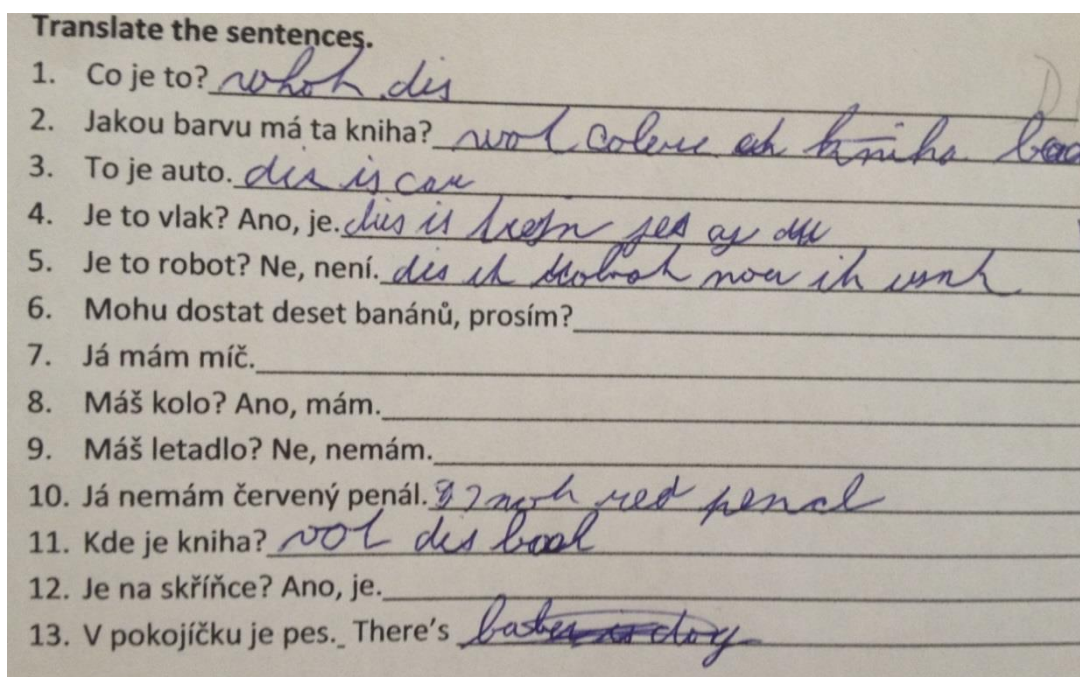 Translate the sentences.
1. Co je to? whoh dis
2. Jakou barvu má ta kniha? wol colere eh kniha boo
3. To je auto. dis is car
4. Je to vlak? Ano, je. dis is trejn jes aj du
5. Je to robot? Ne, není. dis ih roboh nou ih
6. Mohu dostat deset banánů, prosím?
7. Já mám míč.
8. Máš kolo? Ano, mám.
9. Máš letadlo? Ne, nemám.
10. Já nemám červený penál. noh red penal
11. Kde je kniha? vol dis book
12. Je na skříňce? Ano, je.
13. V pokojíčku je pes. There's dog